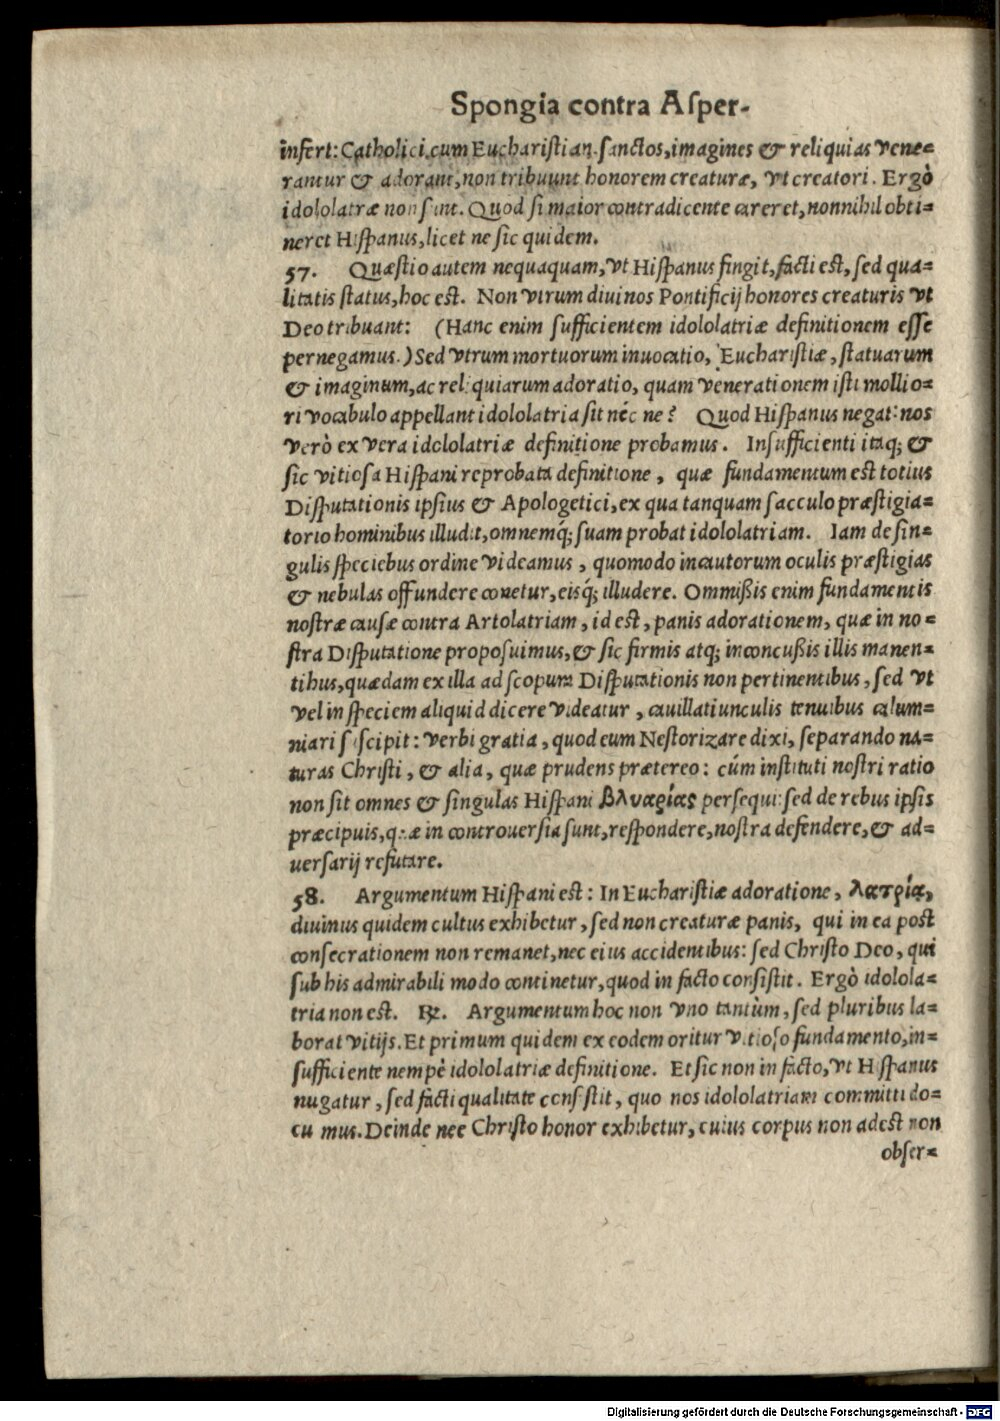 Spongia contra Aſper-
infert: Catholici cum Euchariſtian ſanctos, imagines & reliquias vene=
rantur & adorant, non tribuunt honorem creaturæ, vt creatori. Ergò
idololatræ non ſunt. Quod ſi maior contradicente careret, nonnihil obti=
neret Hiſpanus, licet ne ſic quidem.
57. Quæſtio autem nequaquam, vt Hiſpanus fingit, facti eſt, ſed qua=
litatis ſtatus, hoc eſt. Non vtrum diuinos Pontificij honores creaturis vt
Deo tribuant: (Hanc enim ſufficientem idololatriæ definitionem eſſe
pernegamus.) Sed vtrum mortuorum inuocatio, Euchariſtiæ, ſtatuarum
& imaginum, ac reliquiarum adoratio, quam venerationem iſti mollio=
ri vocabulo appellant idololatria ſit néc ne? Quod Hiſpanus negat: nos
verò ex vera idololatriæ definitione probamus. Inſufficienti itaq; &
ſic vitioſa Hiſpani reprobata definitione, quæ fundamentum eſt totius
Diſputationis ipſius & Apologetici, ex qua tanquam ſacculo præſtigia=
torio hominibus illudit, omnemq́; ſuam probat idololatriam. Iam de ſin=
gulis ſpeciebus ordine videamus, quomodo incautorum oculis præſtigias
& nebulas offundere conetur, eisq́; illudere. Ommißis enim fundamentis
noſtræ cauſæ contra Artolatriam, id eſt, panis adorationem, quæ in no=
ſtra Diſputatione propoſuimus, & ſic firmis atq; inconcußis illis manen=
tibus, quædam ex illa ad ſcopum Diſputationis non pertinentibus, ſed vt
vel in ſpeciem aliquid dicere videatur, cauillatiunculis tenuibus calum=
niari ſuſcipit: verbi gratia, quod eum Neſtorizare dixi, ſeparando na=
turas Chriſti, & alia, quæ prudens prætereo: cúm inſtituti noſtri ratio
non ſit omnes & ſingulas Hiſpani βλυαρίας perſequi: ſed de rebus ipſis
præcipuis, quæ in controuerſia ſunt, reſpondere, noſtra defendere, & ad=
uerſarij refutare.
58. Argumentum Hiſpani eſt: In Euchariſtiæ adoratione, λατρία,
diuinus quidem cultus exhibetur, ſed non creaturæ panis, qui in ea poſt
conſecrationem non remanet, nec eius accidentibus: ſed Chriſto Deo, qui
ſub his admirabili modo continetur, quod in facto conſiſtit. Ergò idolola=
tria non eſt. ℞. Argumentum hoc non vno tantùm, ſed pluribus la=
borat vitijs. Et primum quidem ex eodem oritur vitioſo fundamento, in=
ſufficiente nempè idololatriæ definitione. Et ſic non in facto, vt Hiſpanus
nugatur, ſed facti qualitate conſiſtit, quo nos idololatriam committi do=
cu mus. Deinde nec Chriſto honor exhibetur, cuius corpus non adeſt non
obſer=
Digitalisierung gefördert durch die Deutsche Forschungsgemeinschaft - DFG